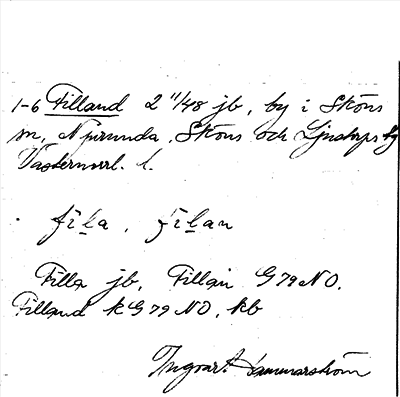 1-6 Filland 2 11/48 jb, by i Sköns
sn, Njurunda, Sköns och Ljustorps tg
Västernorrl. l.
fila, filan
Filla jb, Fillan G79NO.
Filland k G79NO, kb
Ingvar Hammarström